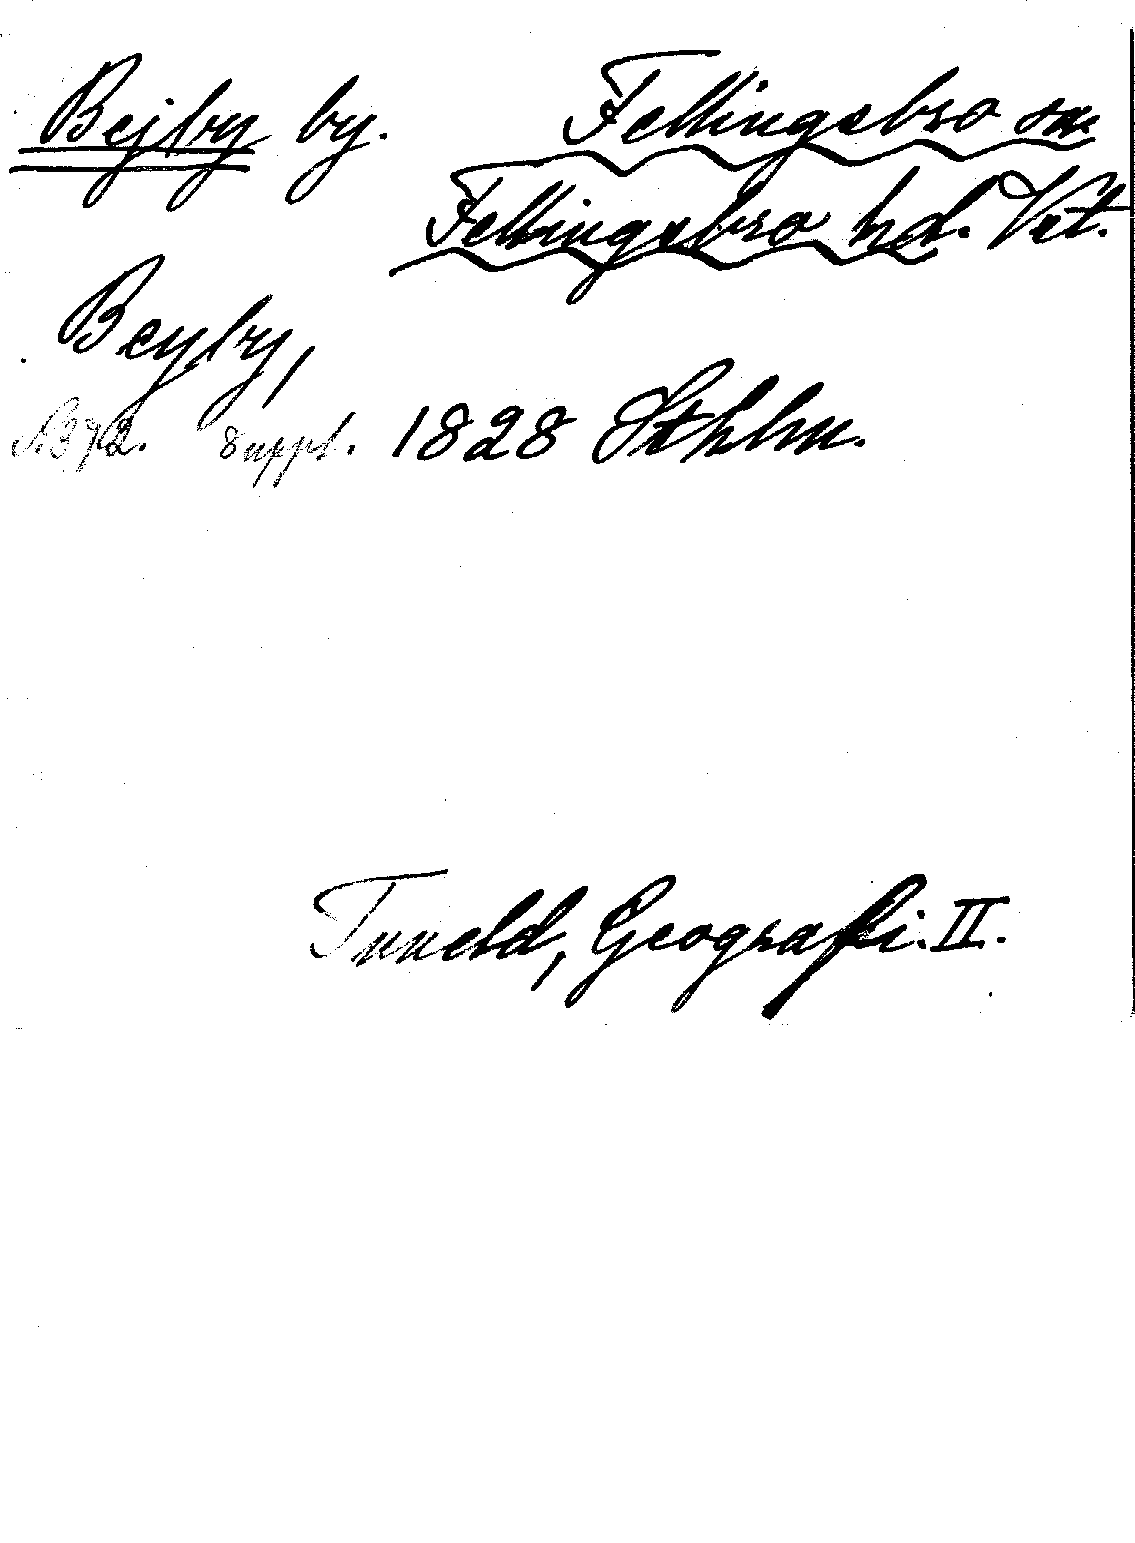 Bejby by. Fellingsbro sn
Fellingsbro hd. Vstm.
Beyby,
s. 372. suppl. 1828 Sthlm.
Tuneld, Geografi. II.